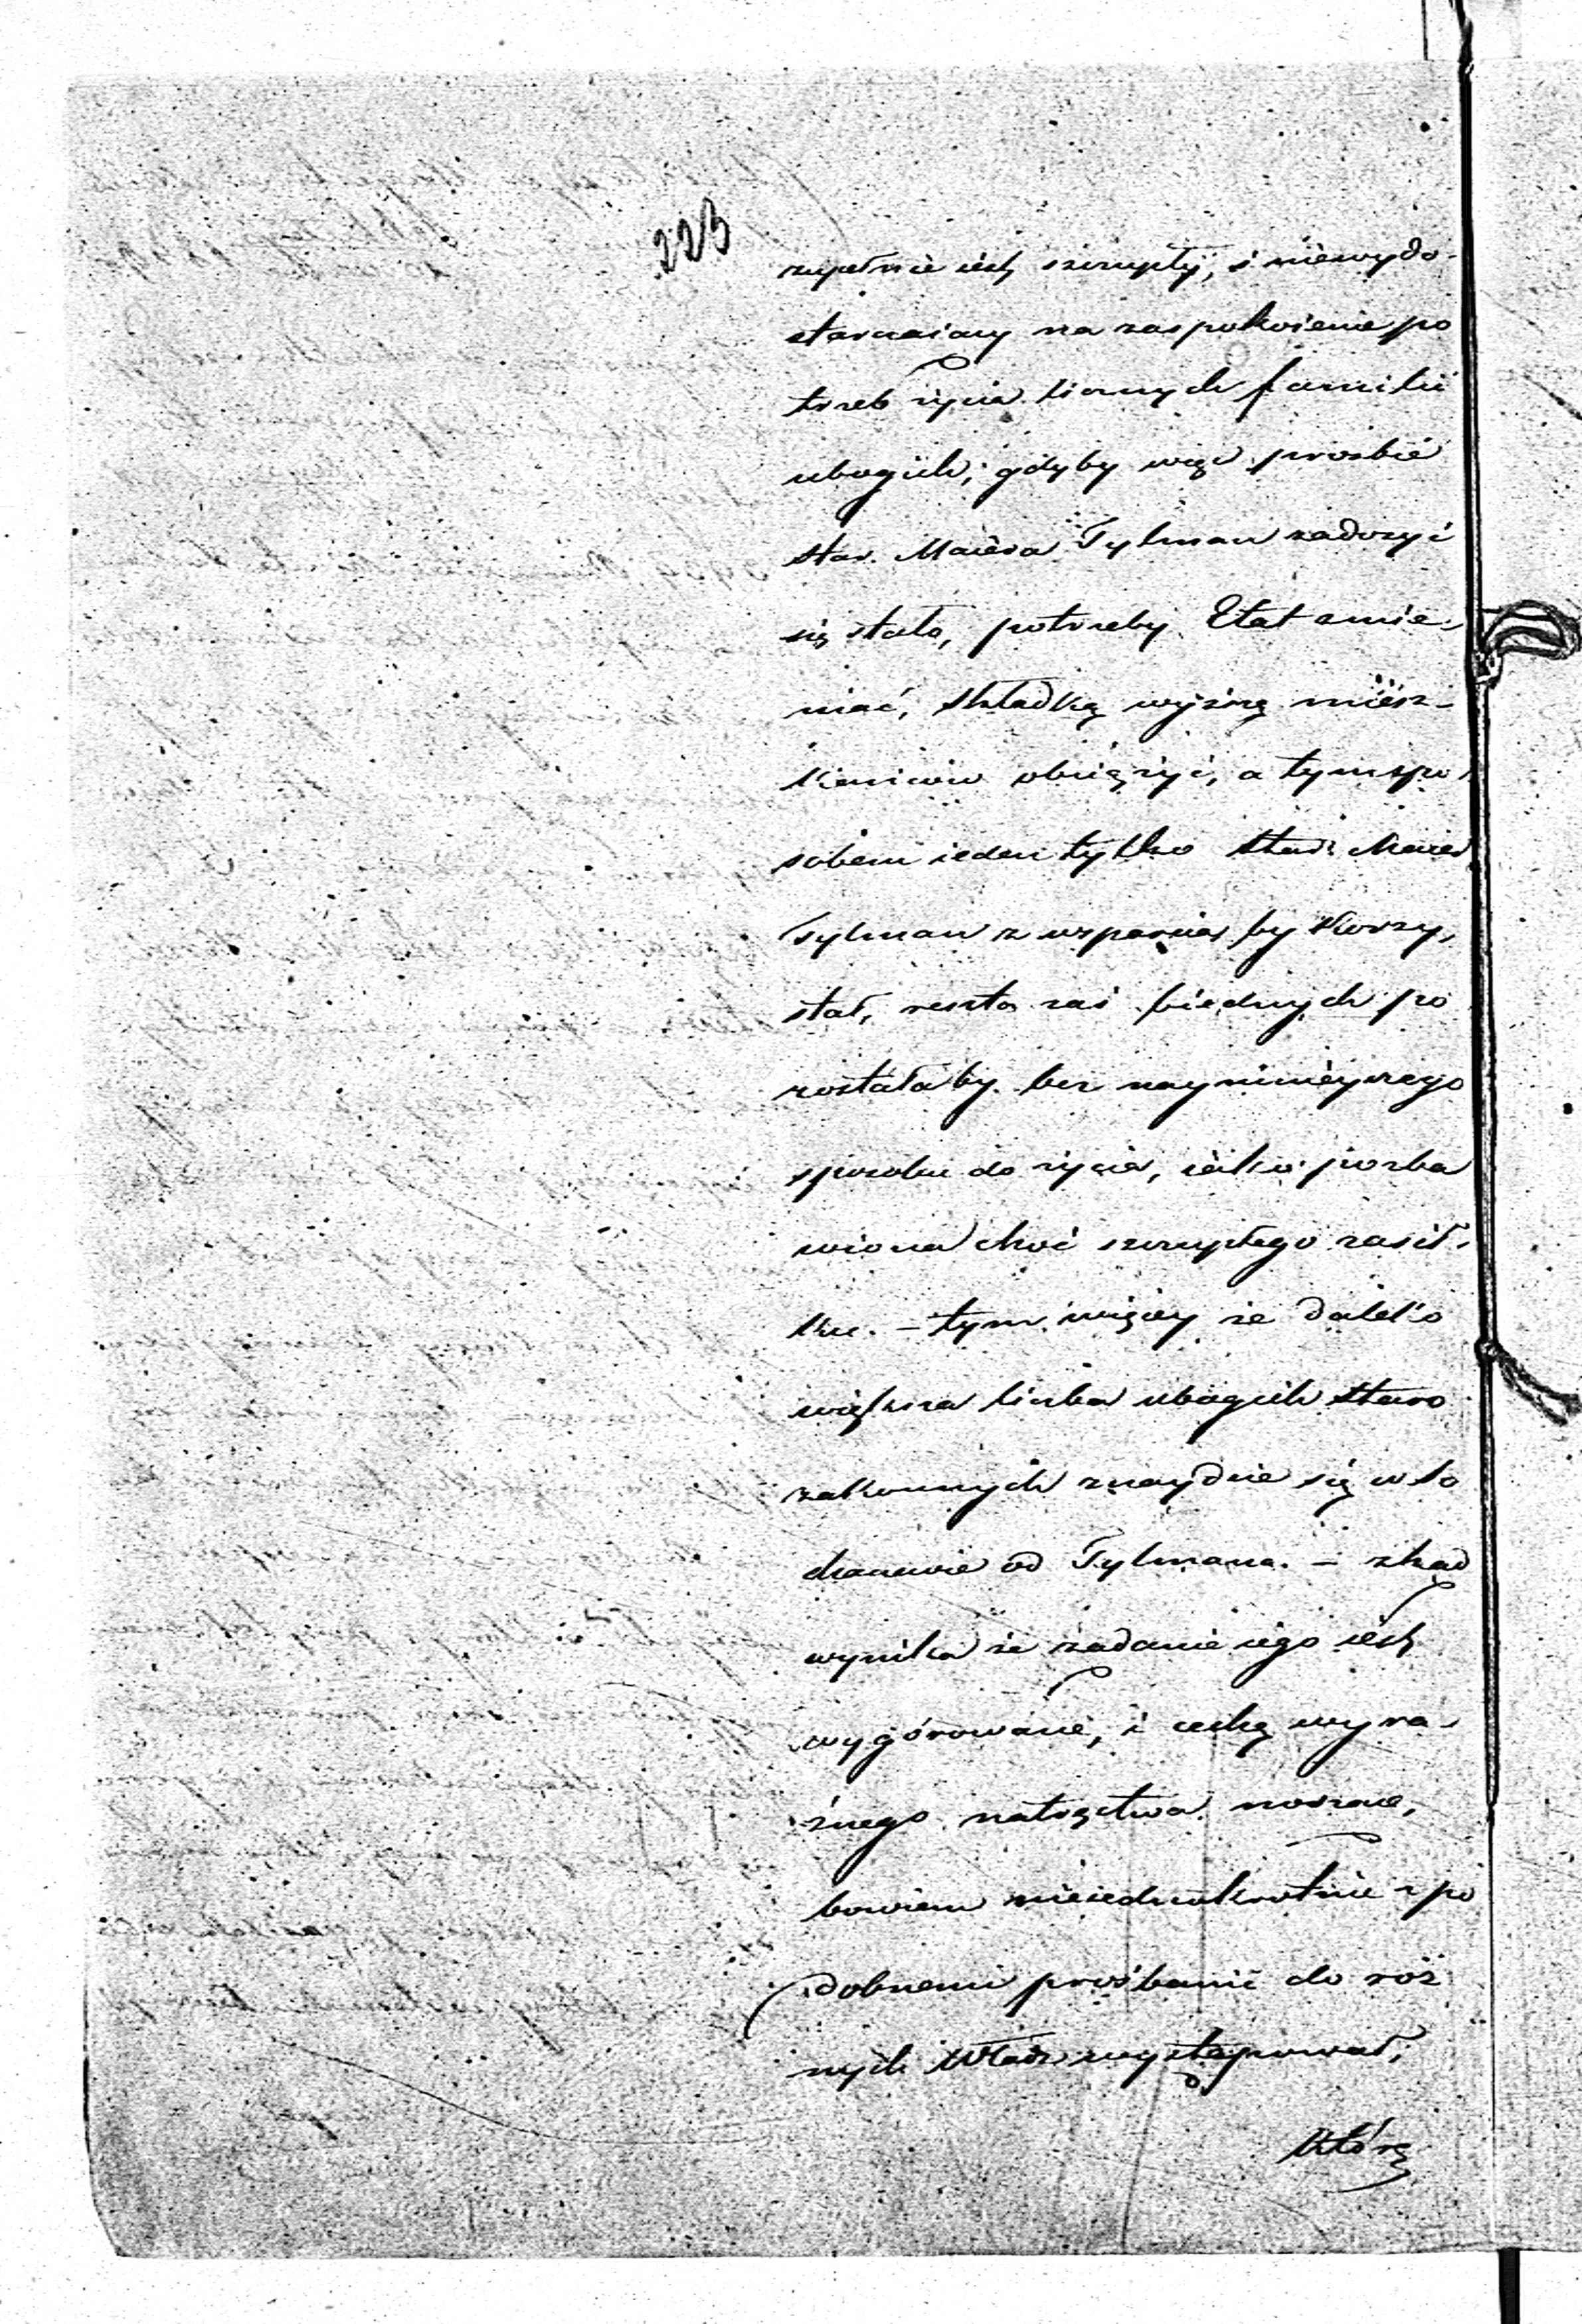 223
zupełnie iest szczupły, i niewydo-
starczaiący na zaspokoienie po
trzeb życia licznych familii
ubogich; gdyby więc prosbie
star. Maiera Tylman zadosyć
się stało, potrzeby Etat zmie-
niać, składką wyższą miesz-
kancow obciążyć, a tym spo-
sobem ieden tylko Star. Maier
Tylman z wsparcia by korzy-
stał, reszta zaś biednych po
zostałaby bez naymnieyszego
sposobu do życia, iako pozba
wiona choć szczupłego zasił-
ku. - tym więcey że daleko
większa liczba ubogich Staro
zakonnych znayduie się w So
chanowie od Tylmana. - zkąd
wynika że żądanie iego iest
wygórowane, i cechę wyra-
źnego natręctwa noszące,
bowiem nieiednokrotnie z po
dobnemi prośbami do róż
nych Władz występował,
którą